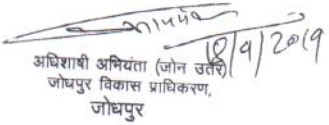 18/9/2019
अधिशाषी अभियंता (जोन उत्तर)
जोधपुर विकास प्राधिकरण,
जोधपुर